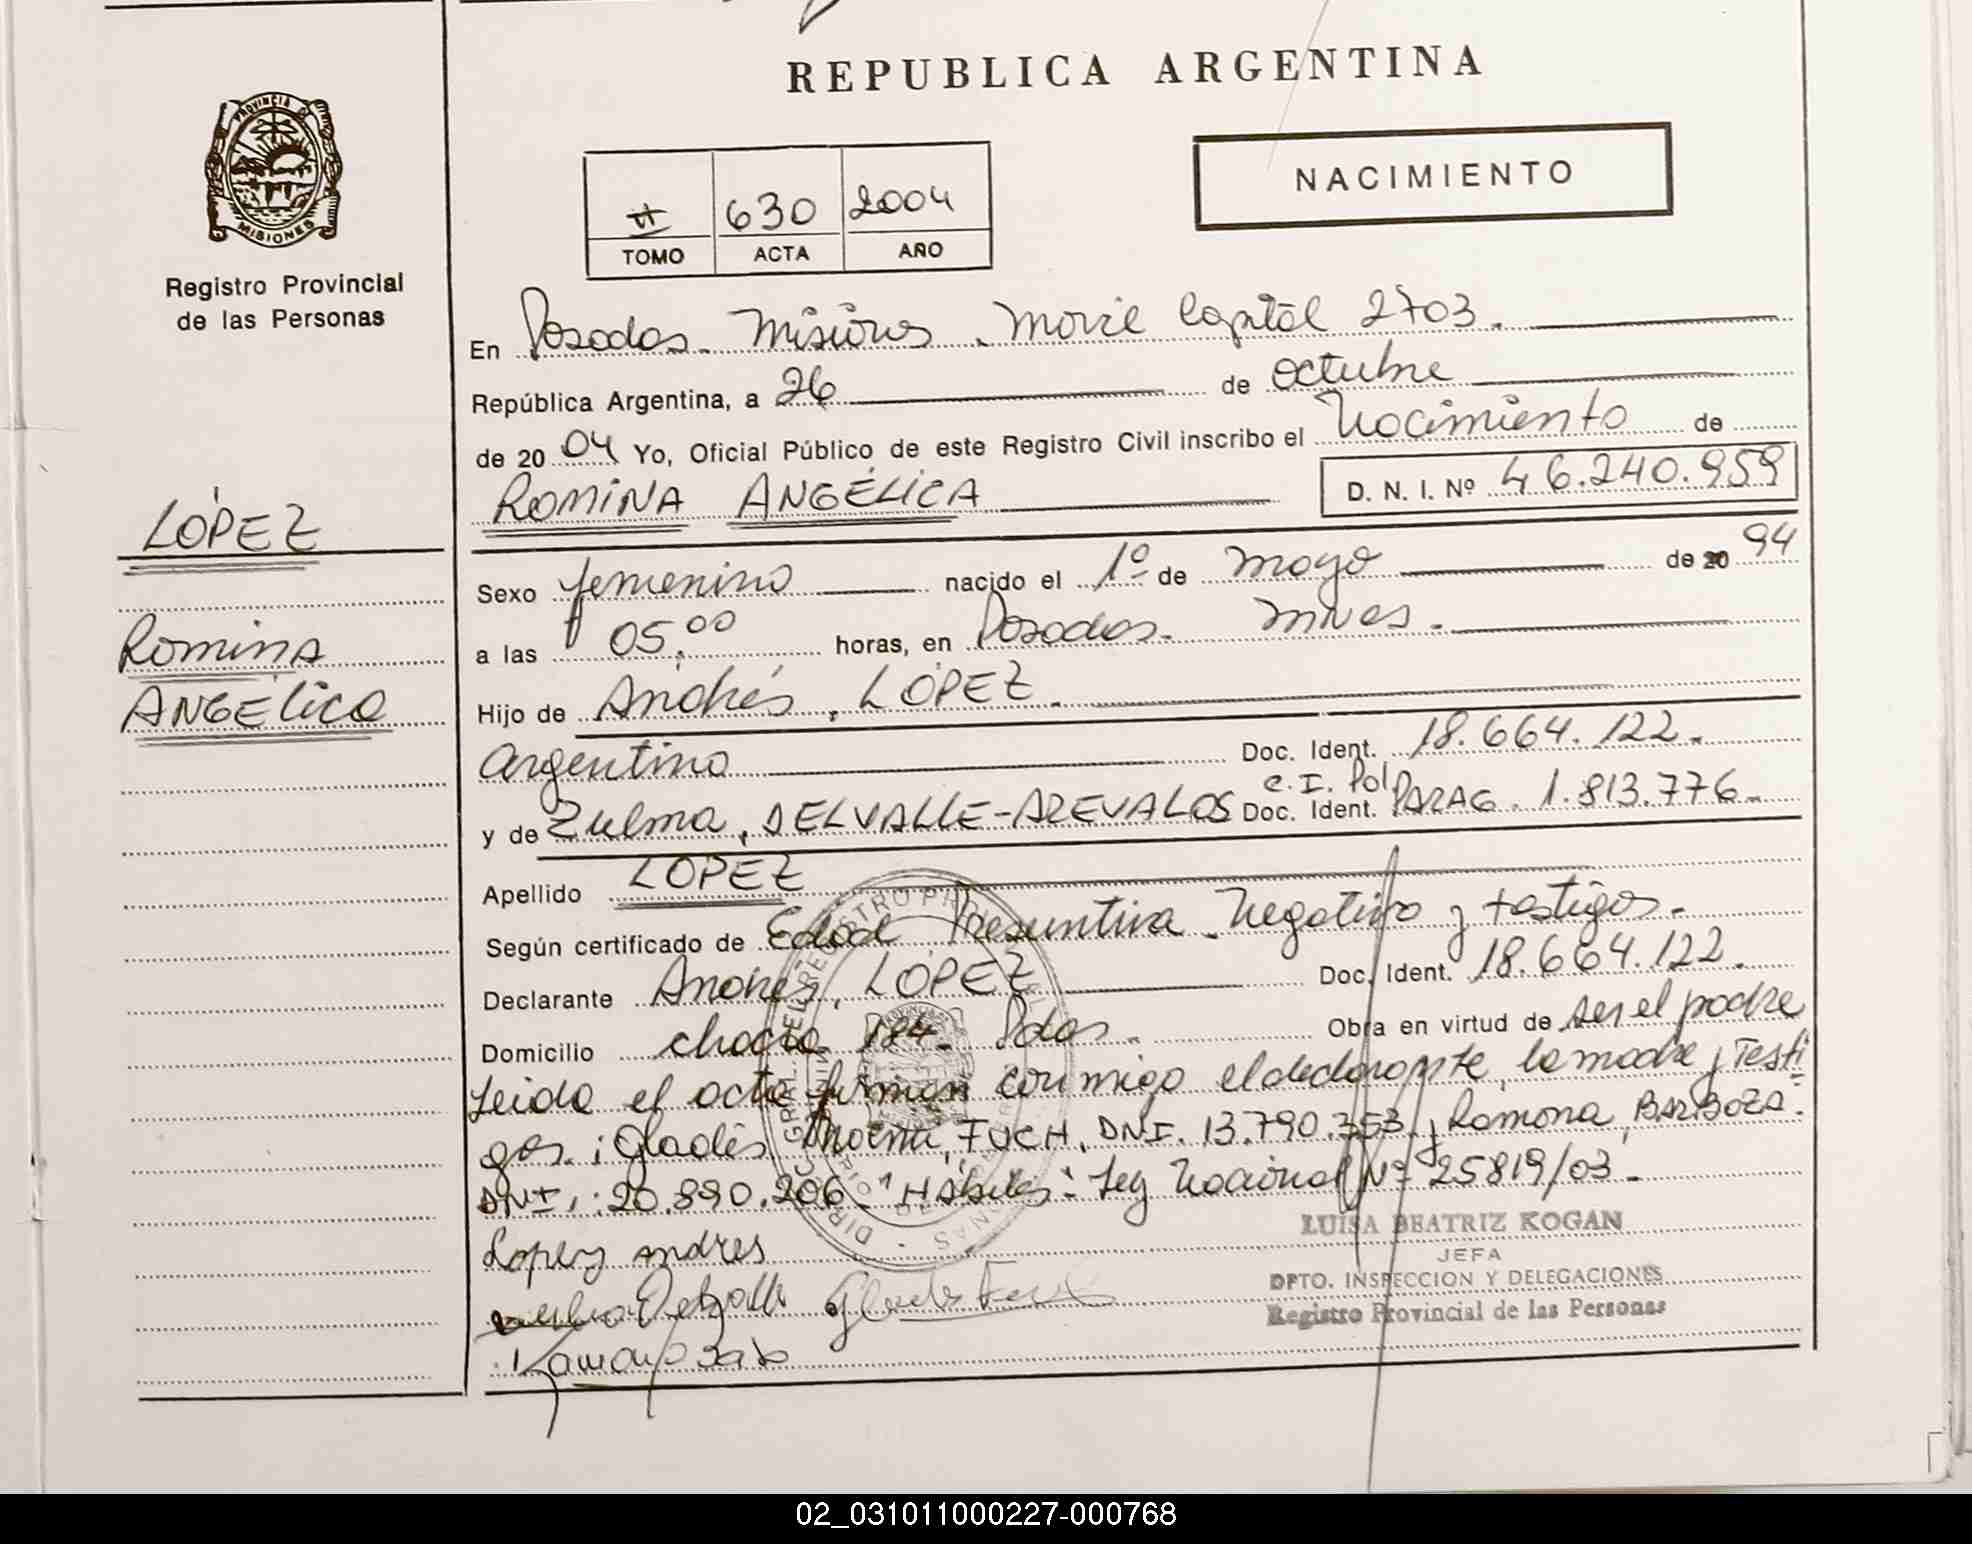 REPUBLICA ARGENTINA
PROVINCIA DE
MISIONES
Registro Provincial
de las Personas
NACIMIENTO
630 2004
TOMO ACTA AÑO
En Posadas. Misiones. Movil Capital 2703.
República Argentina, a 26 de octubre
de 20 04 Yo, Oficial Público de este Registro Civil inscribo el Nacimiento de
ROMINA ANGÉLICA D. N. I. Nº 46.240.959
LÓPEZ
Romina
ANGÉLICA
Sexo femenino nacido el 1º de mayo de 20 94
a las 05,00 horas, en Posadas. Mnes.
Hijo de Andrés, LÓPEZ.
argentino Doc. Ident. 18.664.122.
y de Zulma, DELVALLE-AREVALOS C.I. Pol Doc. Ident. PARAG. 1.813.776.
Apellido LOPEZ
Según certificado de Edad Presuntiva. Negativo y testigos.
Declarante Andrés, LÓPEZ Doc. Ident. 18.664.122.
Domicilio chacra 184. Pdas. Obra en virtud de ser el padre
Leida el acta firman conmigo el declarante, la madre y Testi
gos: Gladis Noemi, FUCH, DNI. 13.790.353 y Ramona, BARBOZA.
DNI,: 20.890.206 "Hábiles": Ley Nacional Nº 25819/03.
Lopez andres
LUISA BEATRIZ KOGAN
JEFA
DPTO. INSPECCION Y DELEGACIONES
Registro Provincial de las Personas
02_031011000227-000768